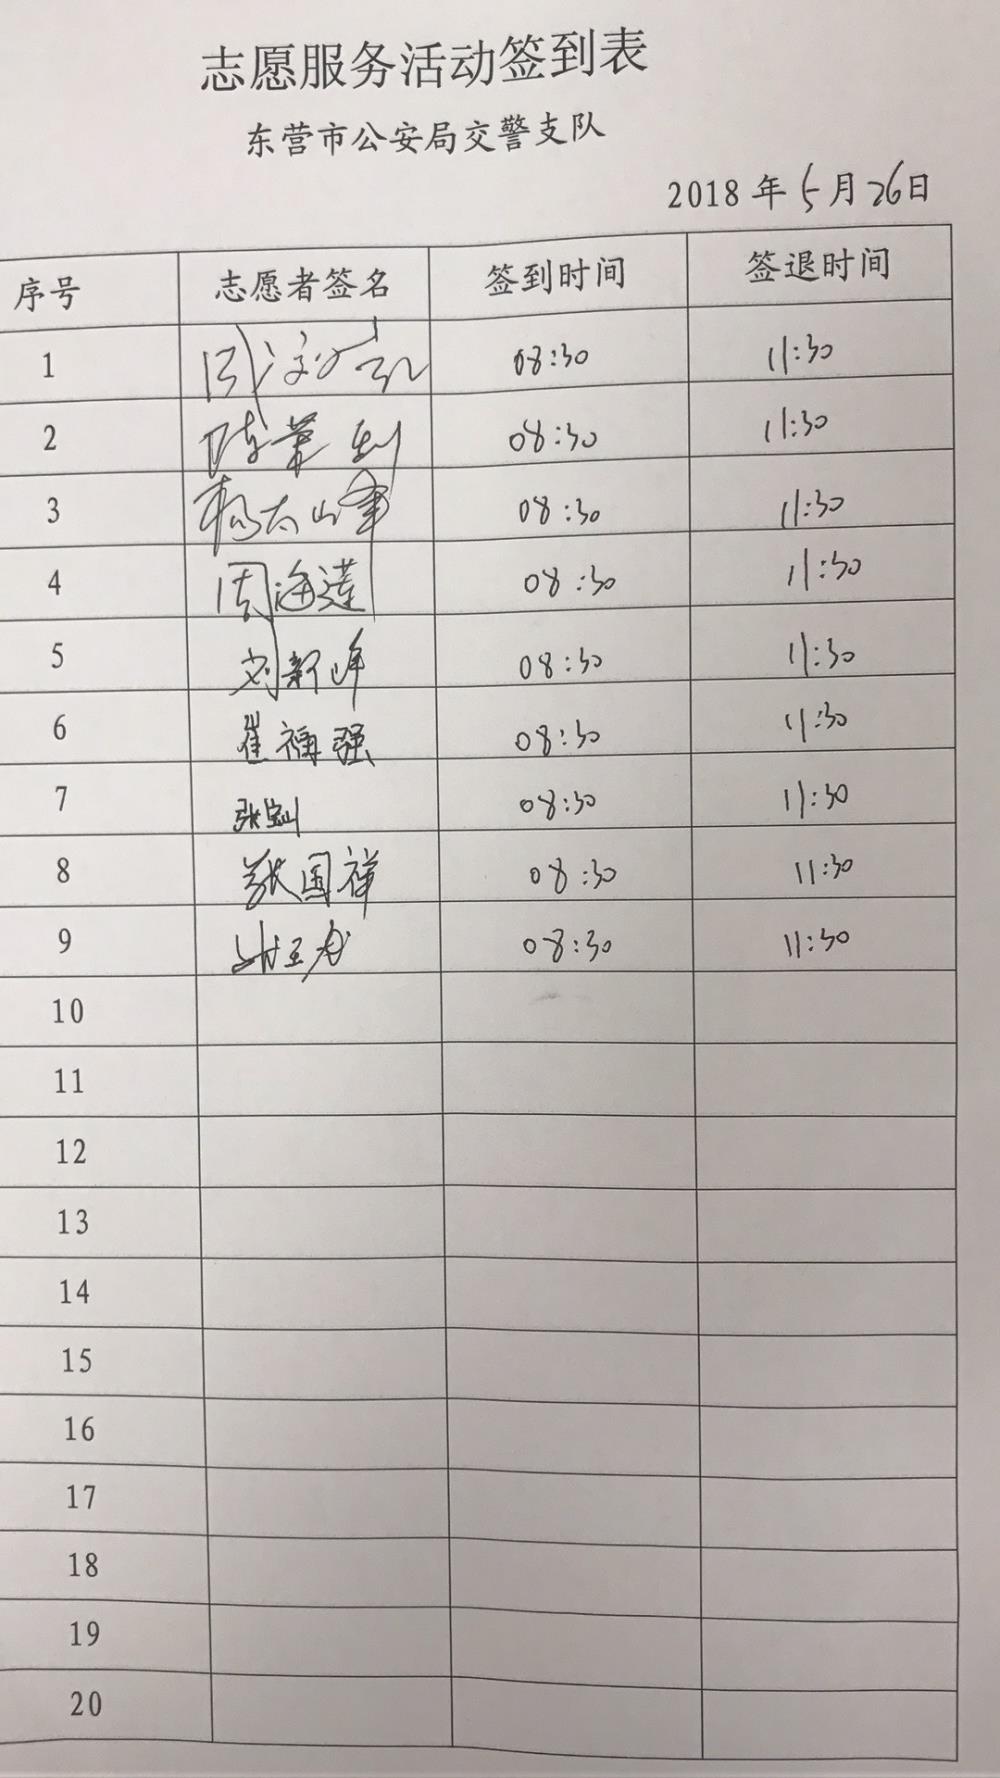 志愿服务活动签到表
东营市公安局交警支队
2018 年 5 月 26 日
序号 志愿者签名 签到时间 签退时间
1 08:30 11:30
2 08:30 11:30
3 杨太山峰 08:30 11:30
4 周海莲 08:30 11:30
5 刘新峰 08:30 11:30
6 崔福强 08:30 11:30
7 08:30 11:30
8 张国祥 08:30 11:30
9 08:30 11:30
10
11
12
13
14
15
16
17
18
19
20